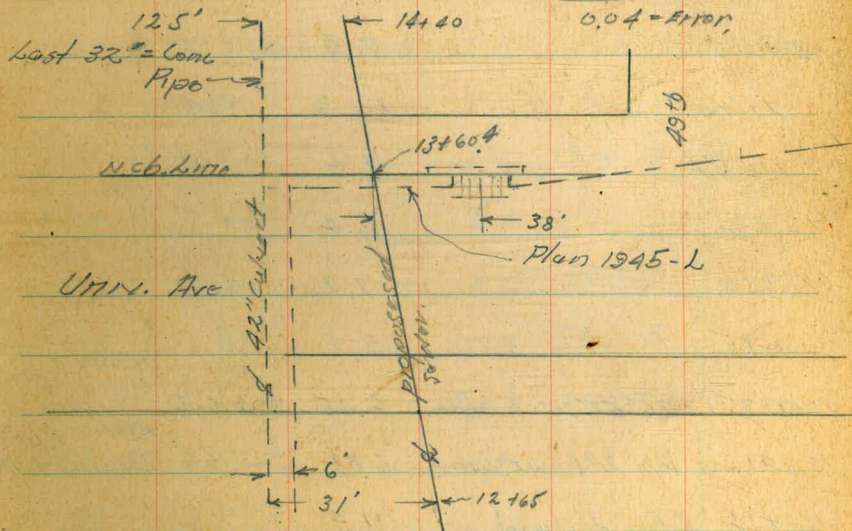 12.5'
14+40
0.04 = Error,
Last 32" = Conc
Pipe
49th
13+60.4
N. cb. Line
38'
Plan 1945-L
Univ. Ave
℄ 42" Culvert
proposed
℄
6'
31'
12+65